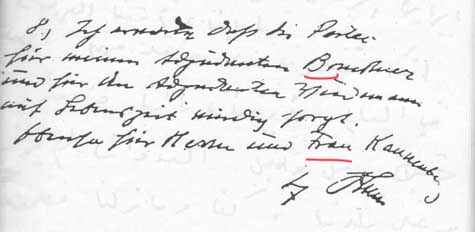 8, Ich erwarte daß die Partei
für meinen Adjudanten Bruckner
und für den Adjudanten Wiedemann
auf Lebenszeit würdig sorgt.
Ebenso für Herrn und Frau Kannenberg